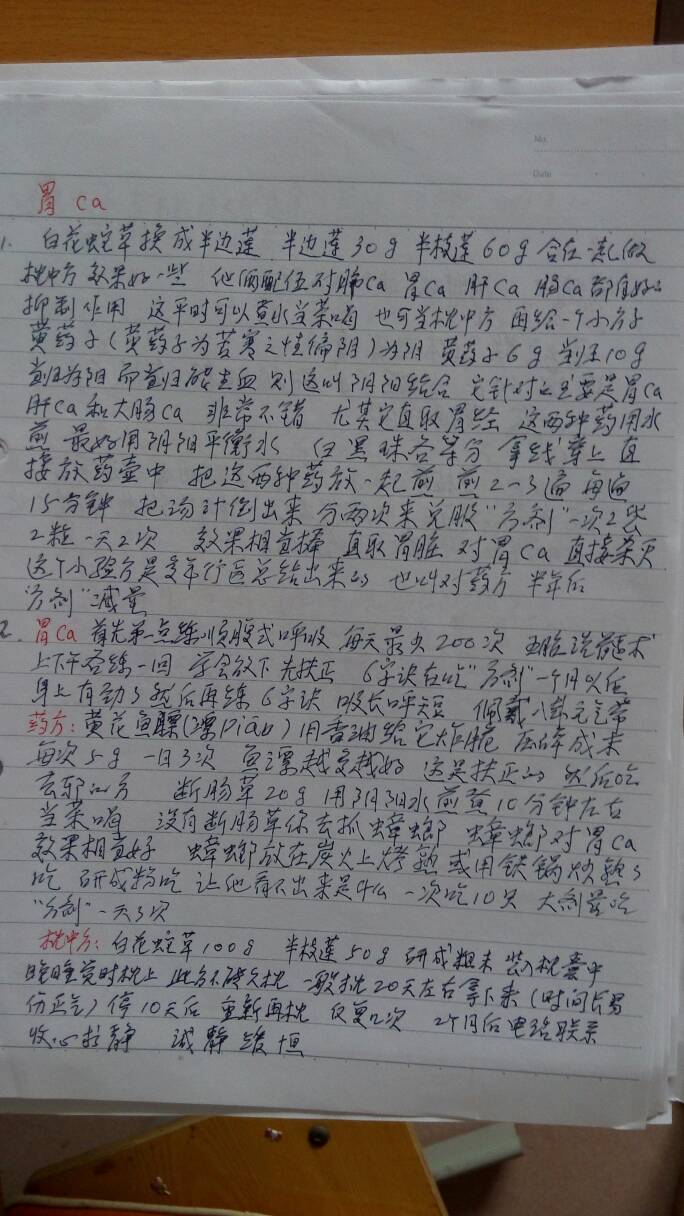 No.
Date
胃 ca
1. 白花蛇草换成半边莲 半边莲30g 半枝莲60g 合在一起做
枕中方 效果好一些 他俩配伍对肺ca 胃ca 肝ca 肠ca都有好的
抑制作用 这平时可以煮水当茶喝 也可当枕中方 再给一个小方子
黄药子(黄药子为苦寒之性偏阴)为阴 黄药子6g 当归10g
当归为阳 而当归破主血 则这叫阴阳结合 它针对的主要是胃ca
肝ca和大肠ca 非常不错 尤其它直取胃经 这两种药用水
煎 最好用阴阳平衡水 白黑珠各等分 拿线穿上 直
接放药壶中 把这两种药放一起煎 煎2-3遍 每遍
15分钟 把汤汁倒出来 分两次来兑服"方剂"一次2袋
2粒 一天2次 效果相当棒 直取胃脏 对胃ca 直接杀灭
这个小验方是多年行医总结出来的 也叫对药方 半年后
"方剂"减量
2. 胃ca 首先第一点练顺腹式呼吸 每天最少200次 五脏洗髓术
上下午各练一回 学会放下 先扶正 6字诀在吃"方剂"一个月以后
身上有劲了然后再练6字诀 吸长呼短 佩戴八卦元气带
药方:黄花鱼鳔(漂piao)用香油给它炸脆 压碎成末
每次5g 一日3次 鱼漂越多越好 这是扶正的 然后吃
去邪的方 断肠草20g 用阴阳水煎煮10分钟左右
当茶喝 没有断肠草你去抓蟑螂 蟑螂对胃ca
效果相当好 蟑螂放在炭火上烤熟 或用铁锅炒熟了
吃 研成粉吃 让他看不出来是什么 一次吃10只 大剂量吃
"方剂"一天3次
枕中方:白花蛇草100g 半枝莲50g 研成粗末 装入枕囊中
晚睡觉时枕上 此方不破久枕 一般枕20天左右拿下来(时间长易
伤正气)停10天后 重新再枕 反复2次 2个月后电话联系
收心求静 诚静缓恒